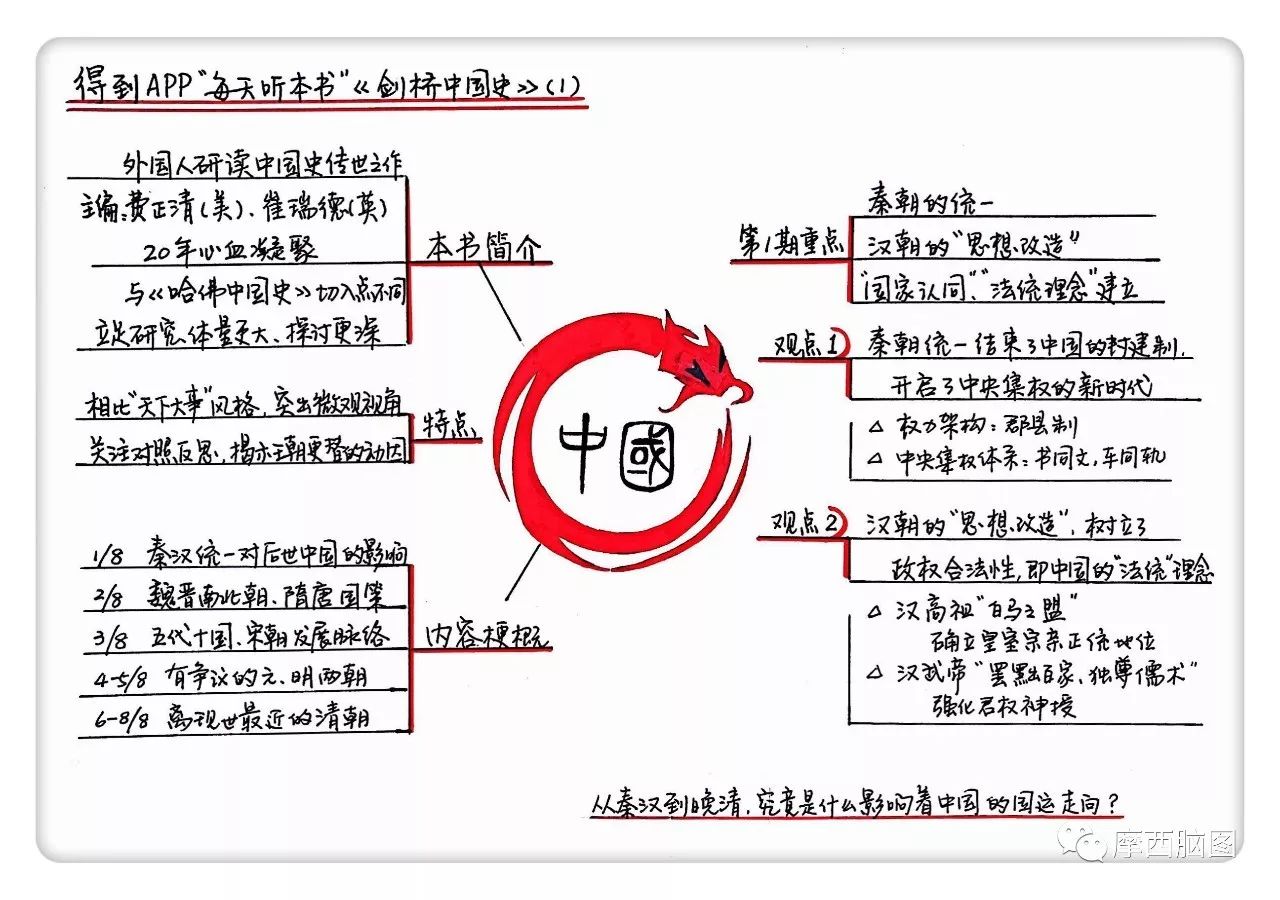 得到APP"每天听本书"《剑桥中国史》(1)
外国人研读中国史传世之作
主编:费正清(美)、崔瑞德(英)
20年心血凝聚
与《哈佛中国史》切入点不同
立足研究、体量更大、探讨更深
本书简介
相比"天下大事"风格,突出微观视角
关注对照反思,揭示王朝更替的动因
特点
1/8 秦汉统一对后世中国的影响
2/8 魏晋南北朝、隋唐国策
3/8 五代十国、宋朝发展脉络
4-5/8 有争议的元、明两朝
6-8/8 离现世最近的清朝
内容梗概
中國
第1期重点
秦朝的统一
汉朝的"思想改造"
"国家认同"、"法统理念"建立
观点1
秦朝统一结束了中国的封建制,
开启了中央集权的新时代
△ 权力架构:郡县制
△ 中央集权体系:书同文,车同轨
观点2
汉朝的"思想改造",树立了
政权合法性,即中国的"法统"理念
△ 汉高祖"白马之盟"
确立皇室宗亲正统地位
△ 汉武帝"罢黜百家、独尊儒术"
强化君权神授
从秦汉到晚清,究竟是什么影响着中国的国运走向?
摩西脑图